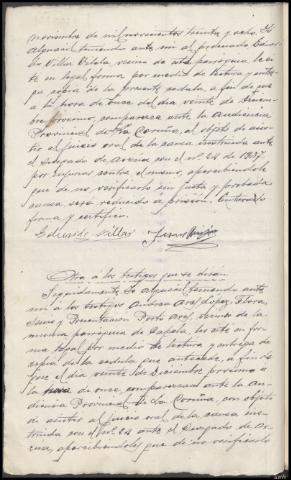 noviembre de mil novecientos treinta y ocho. Yo
Alguacil teniendo ante mi al procesado Eduar-
do Villar Vilela, vecino de esta parroquia le ci-
té en legal forma por medio de lectura y entre-
ga copia de la presente cedula, a fin de que
a la hora de once del dia veinte de diciem-
bre proximo, comparezca ante la Audiencia
Provincial de La Coruña, al objeto de asis-
tir al juicio oral de la causa instruida ante
el Juzgado de Arzua con el nº 24 de 1937.
por injurias contra el mismo, apercibiendole
que de no verificarlo sin justa y probada
causa sera reducido a prision. Enterado
firma y certifico.
Eduardo Villar
Otra a los testigos que se diran.
Seguidamente Yo Alguacil teniendo ante
mi a los testigos Andrea Ares Lopez, Flora
y Presentacion Porto Ares, vecinos de la
misma parroquia de Zapata, les cité en for-
ma legal por medio de lectura y entrega de
copia de la cedula que antecede, a fin de
que el dia veinte de Diciembre proximo a
la hora de once, comparezcan ante la Au-
diencia Provincial de La Coruña, con objeto
de asistir al juicio oral de la causa ins-
truida con el nº 24 ante el Juzgado de Ar-
zua, apercibiendoles que de no verificarlo